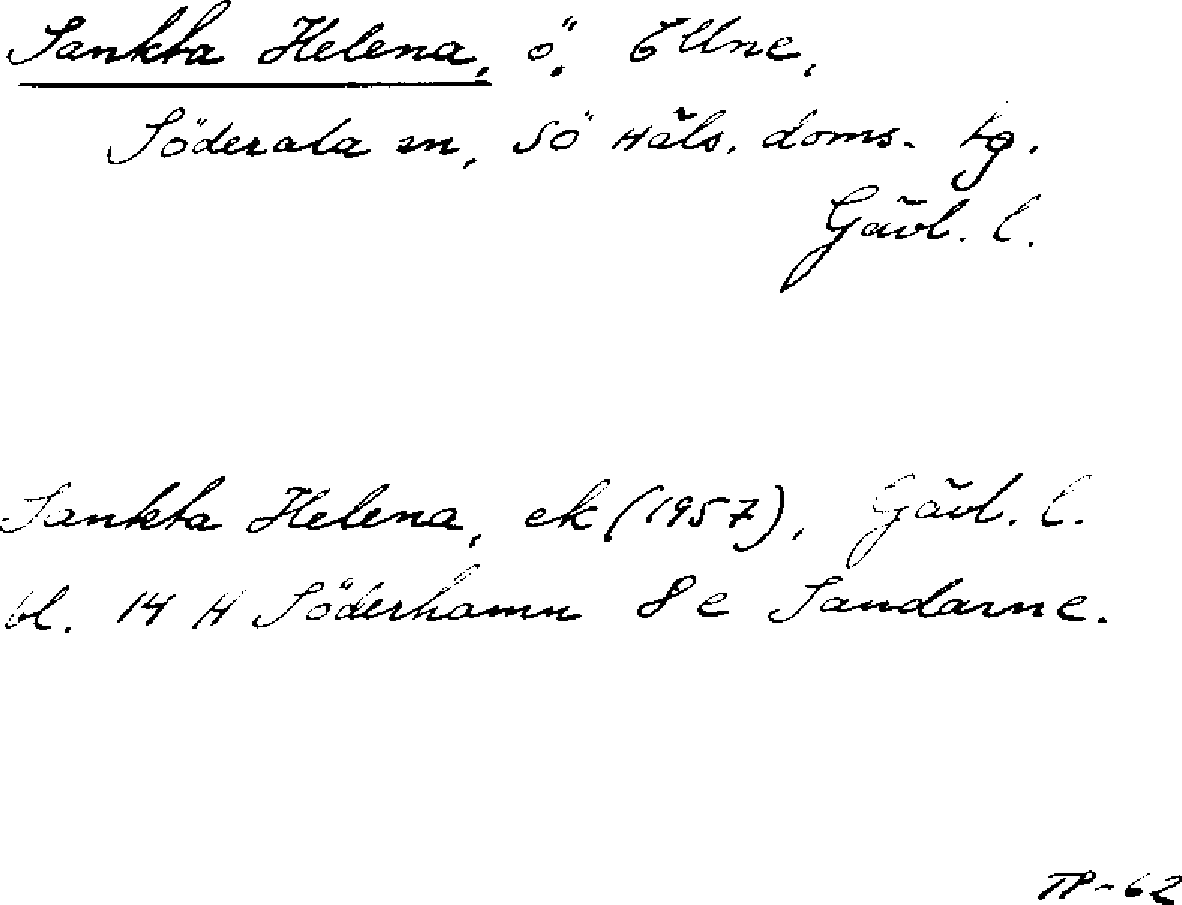 Sankta Helena, ö. Ellne,
Söderala sn, Sö Häls. doms. tg.
Gävl. l.
Sankta Helena, ek (1957), Gävl. l.
bl. 14 H Söderhamn 8 e Sandarne.
TP-62